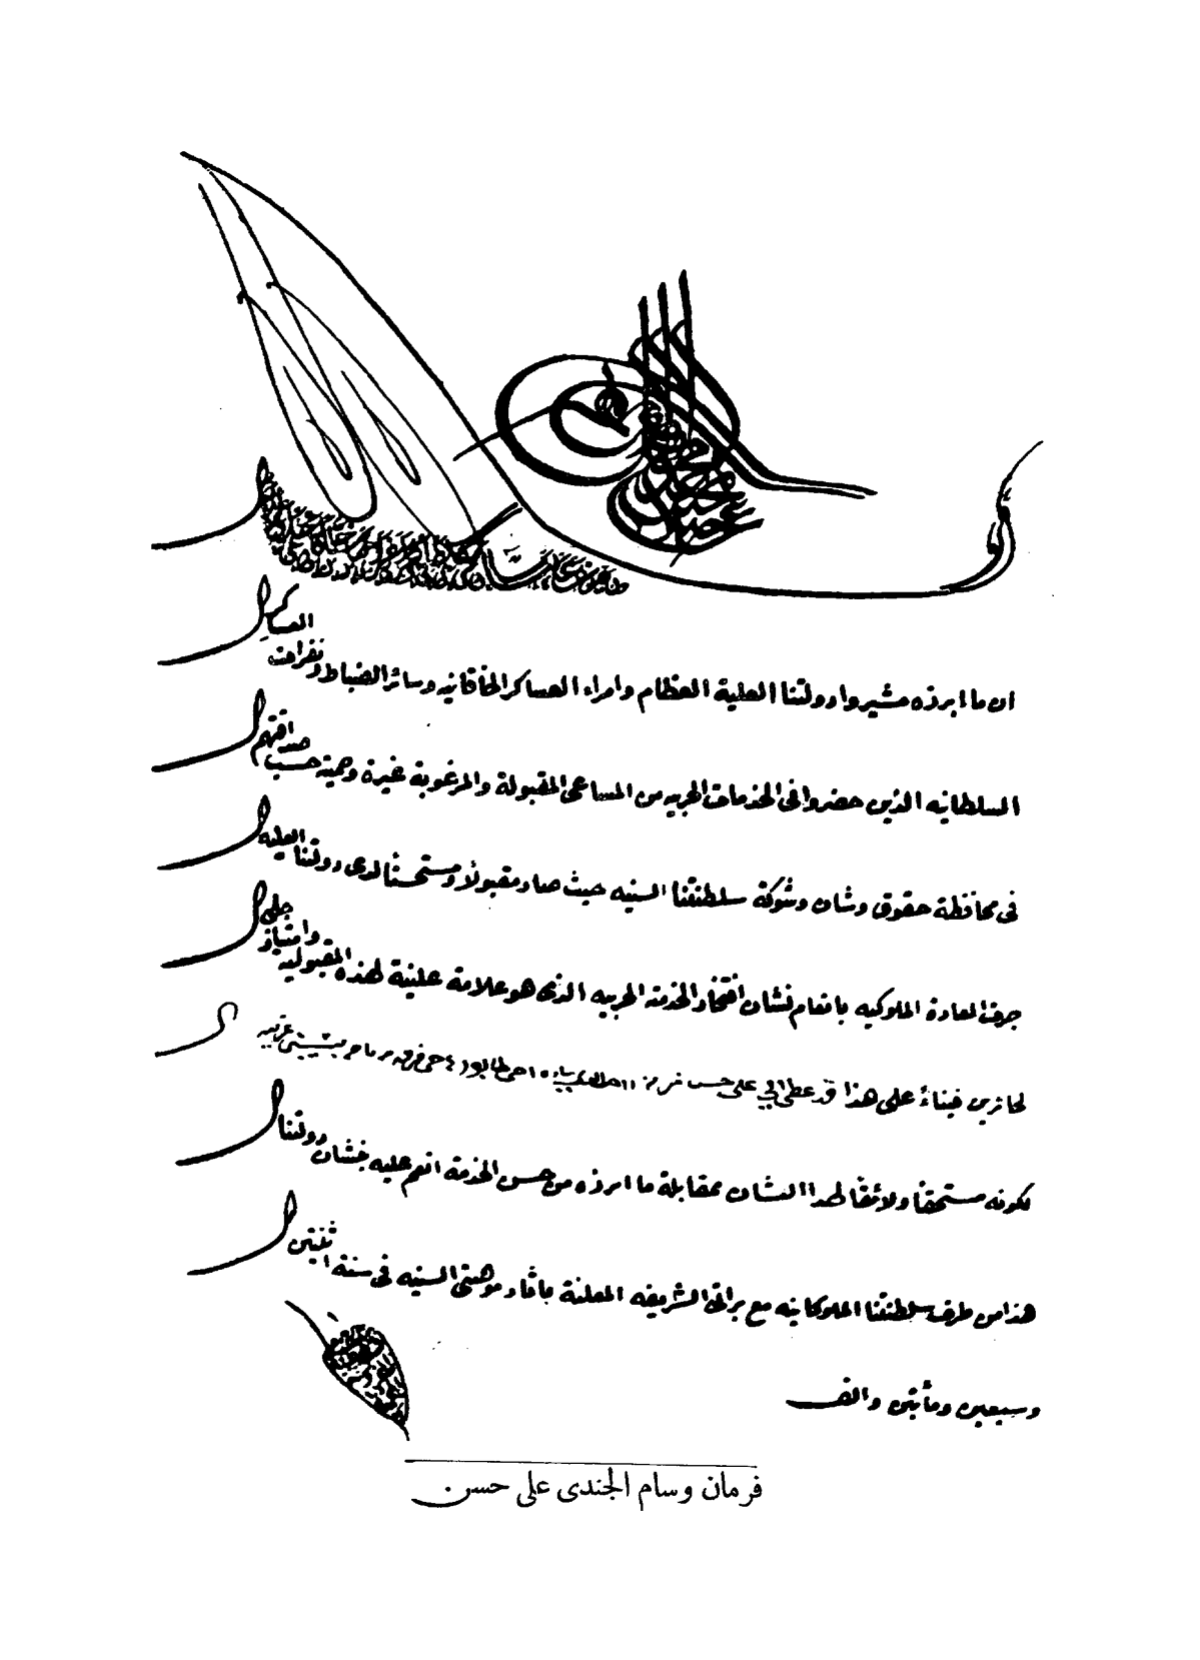 ان ما ابرزه مشيروا دولتنا العلية العظام وامراء العساكر الخاقانيه وسائر الضباط ونفرات العساكر
السلطانيه الذين حضروا فى الخدمات الحربيه من المساعى المقبولة والمرغوبة غيرة وحمية حسب صداقتهم
فى محافظة حقوق وشان وشوكة سلطنتنا السنيه حيث صار مقبولا ومستحسنا لدى دولتنا العليه
جرت العادة الملوكيه بانعام نشان افتخار الخدمة الحربيه الذى هو علامة علنية لهذه المقبوليه وامتياز جلى
لحائزيه فبناءً على هذا قد عطى الى على حسن
لكونه مستحقا ولائقا لهذا النشان بمقابلة ما ابرزه من حسن الخدمة انعم عليه بنشان دولتنا
هذا من طرف سلطنتنا الملوكانيه مع براتى الشريفه المعلنة باثار موهبتى السنيه فى سنة اثنتين
وسبعين ومأتين والف
فرمان وسام الجندى على حسن